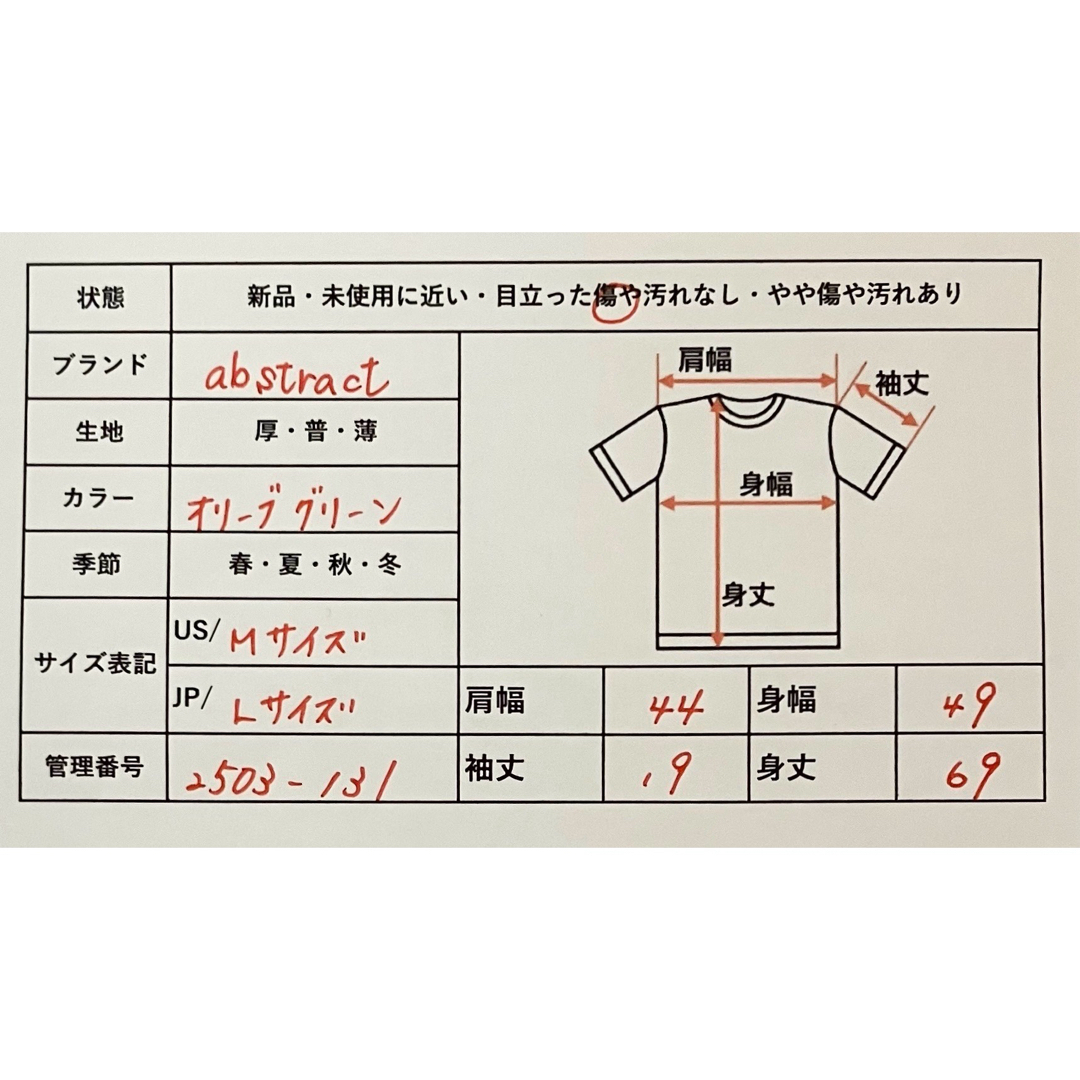 状態 新品・未使用に近い・目立った傷や汚れなし・やや傷や汚れあり
ブランド abstract
生地 厚・普・薄
カラー オリーブグリーン
季節 春・夏・秋・冬
サイズ表記
US/ Mサイズ
JP/ Lサイズ
管理番号 2503-131
肩幅
袖丈
身幅
身丈
肩幅 44 身幅 49
袖丈 19 身丈 69